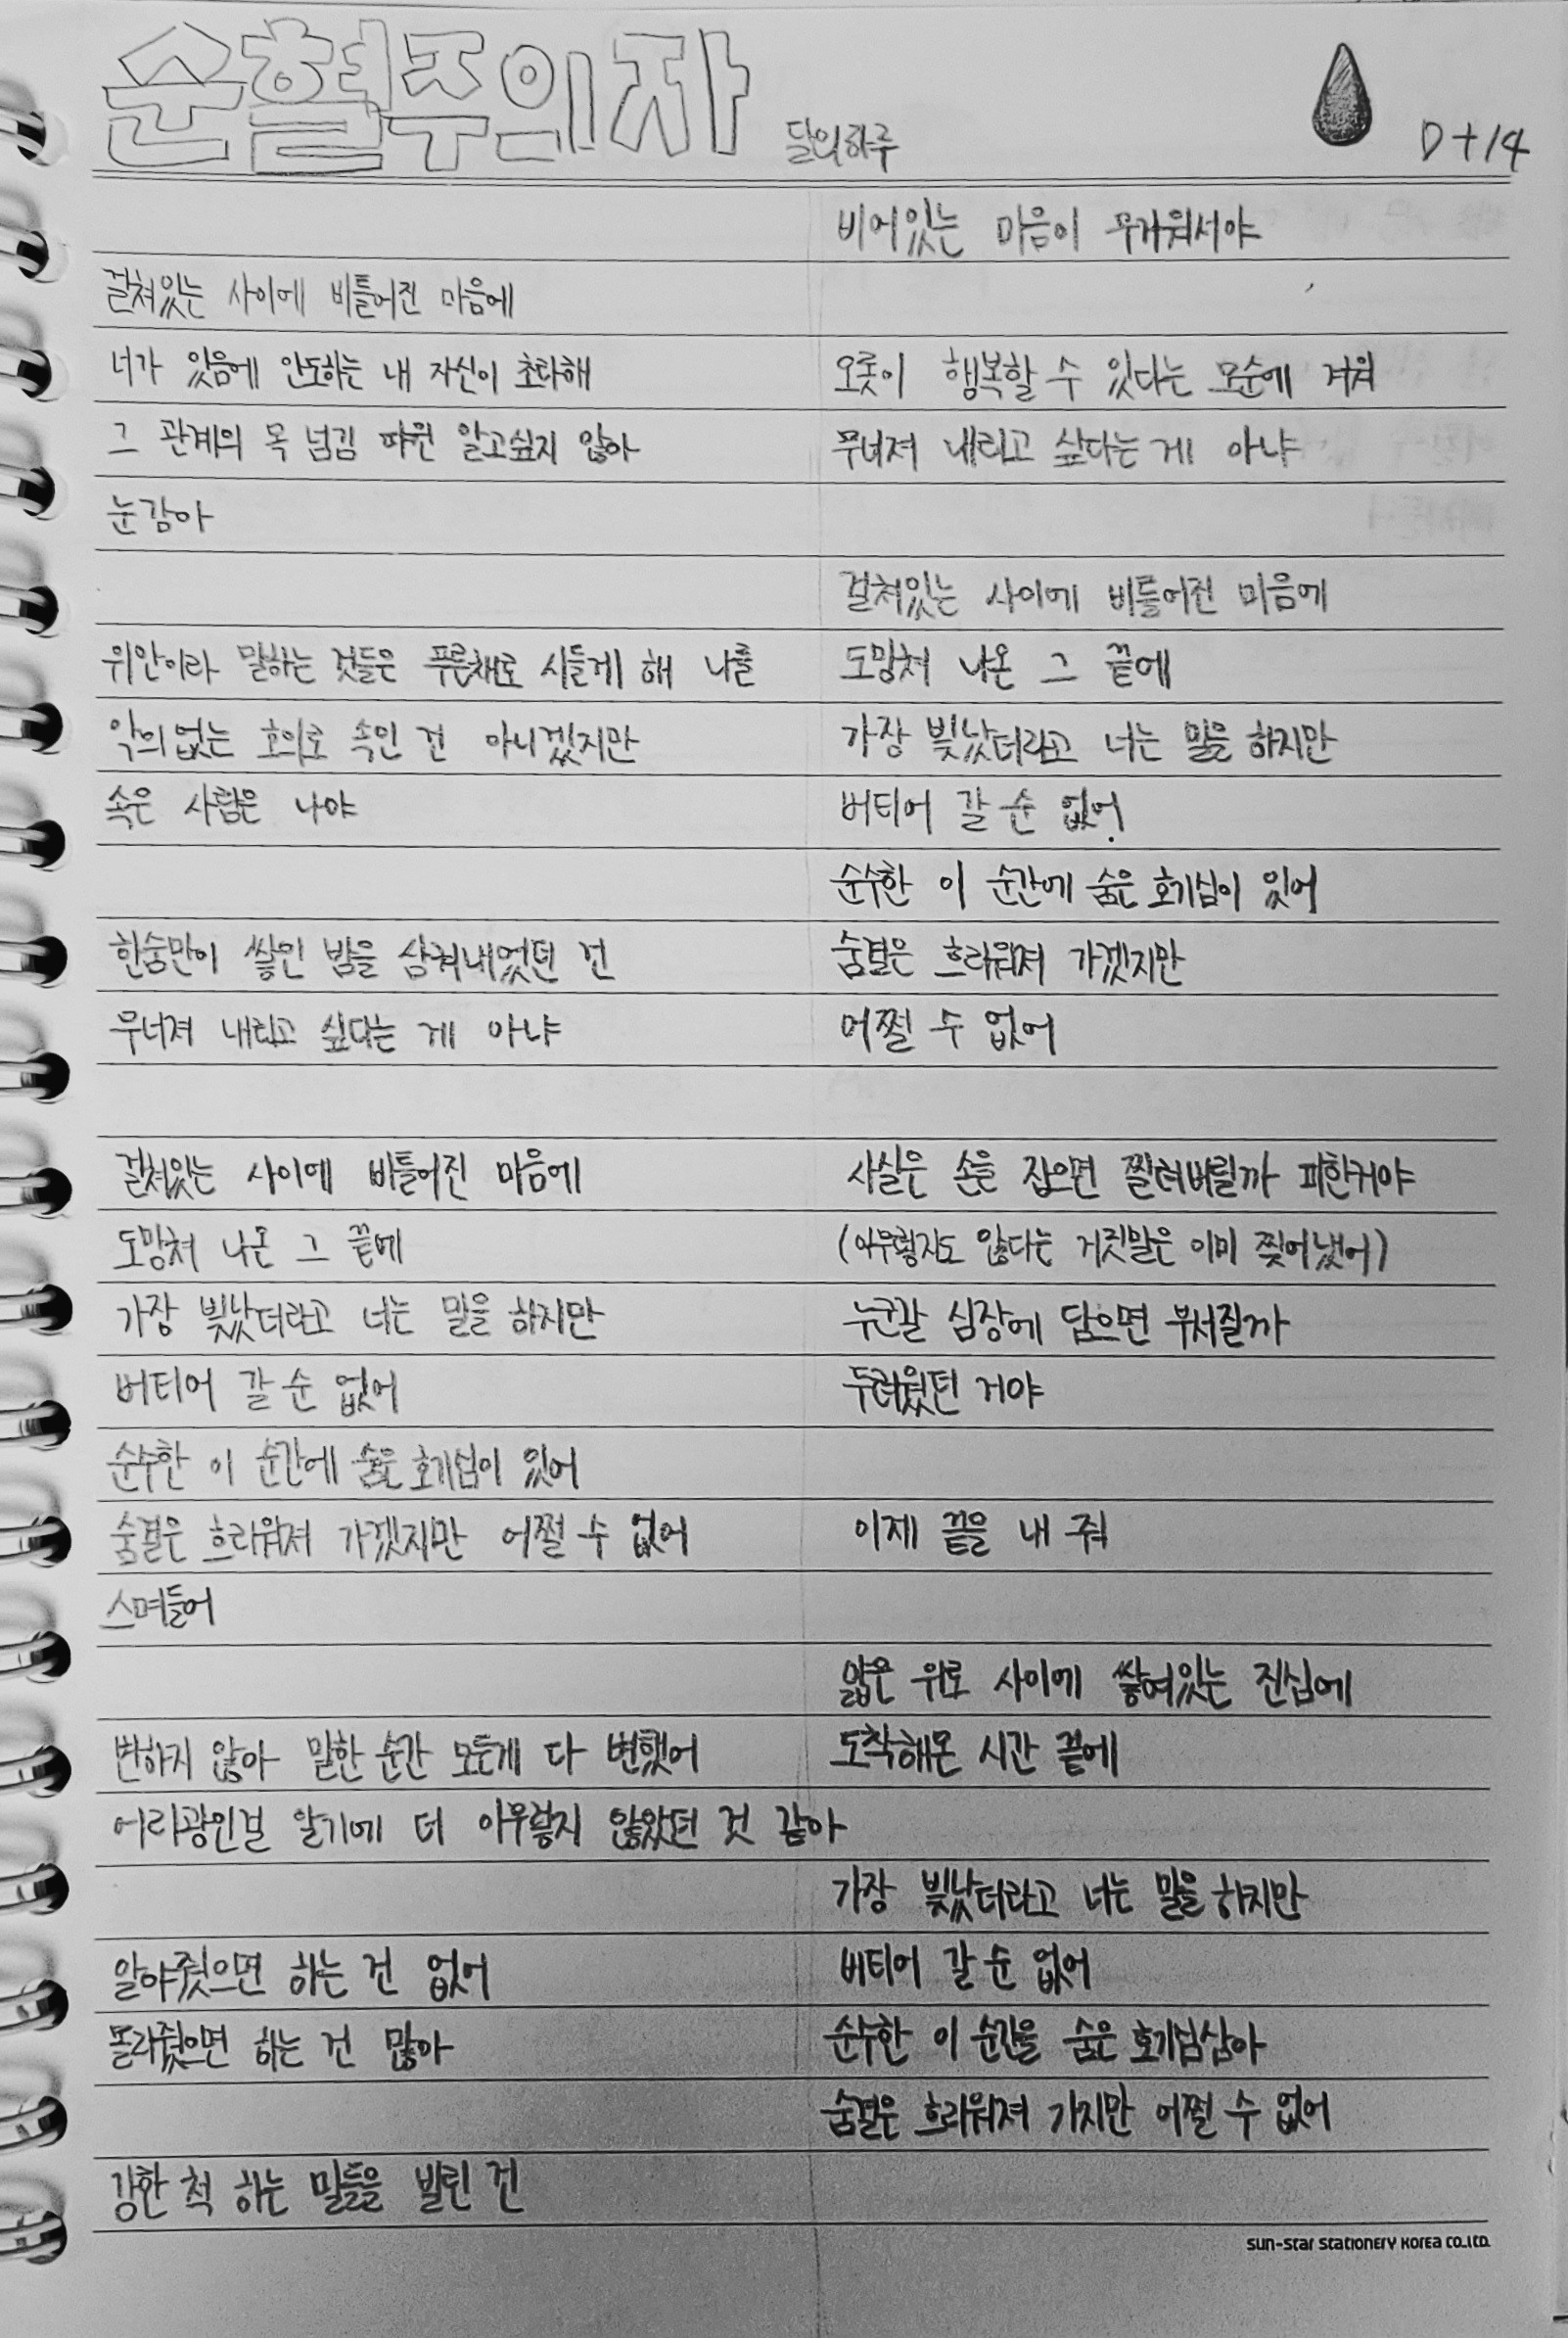 순혈주의자 달의하루 D+14
걸쳐있는 사이에 비틀어진 마음에
너가 있음에 안도하는 내 자신이 초라해
그 관계의 목 넘김 따윈 알고싶지 않아
눈감아
위안이라 말하는 것들은 푸른채로 시들게 해 나를
악의없는 호의로 속인 건 아니겠지만
속은 사람은 나야
한숨만이 쌓인 밤을 삼켜내었던 건
무너져 내리고 싶다는 게 아냐
걸쳐있는 사이에 비틀어진 마음에
도망쳐 나온 그 끝에
가장 빛났더라고 너는 말을 하지만
버티어 갈 순 없어
순수한 이 순간에 숨은 호기심이 있어
숨결은 흐라워져 가겠지만 어쩔 수 없어
스며들어
변하지 않아 말한 순간 모든게 다 변했어
어리광인걸 알기에 더 아무렇지 않았던 것 같아
알아줬으면 하는 건 없어
몰라줬으면 하는 건 많아
강한 척 하는 말들을 빌린 건
비어있는 마음이 무거워서야
오롯이 행복할 수 있다는 모순에 겨워
무너져 내리고 싶다는 게 아냐
걸쳐있는 사이에 비틀어진 마음에
도망쳐 나온 그 끝에
가장 빛났더라고 너는 말을 하지만
버티어 갈 순 없어
순수한 이 순간에 숨은 호기심이 있어
숨결은 흐라워져 가겠지만
어쩔 수 없어
사실은 손을 잡으면 찔려버릴까 피한거야
(아무렇지도 않다는 거짓말은 이미 찢어냈어)
누군갈 심장에 담으면 부서질까
두려웠던 거야
이제 끝을 내 줘
얇은 위로 사이에 쌓여있는 진심에
도착해온 시간 끝에
가장 빛났더라고 너는 말을 하지만
버티어 갈 순 없어
순수한 이 순간을 숨은 호기심삼아
숨결은 흐리워져 가지만 어쩔 수 없어
sun-star stationery korea co.,ltd.